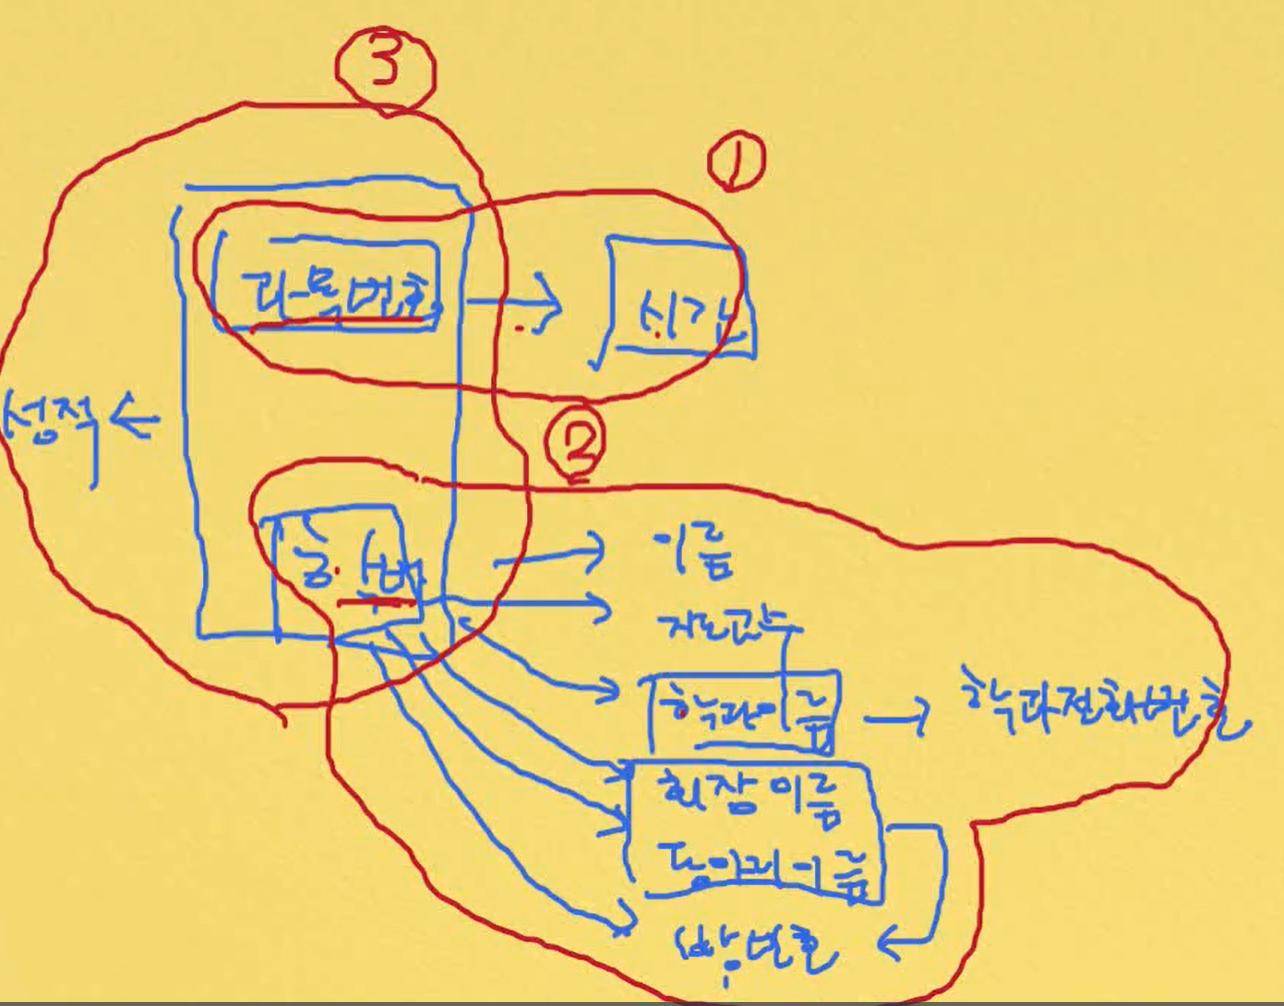 ③
①
과목번호
시간
성적
②
학번
이름
지도교수
학과이름
학과전화번호
회장이름
동아리이름
방번호